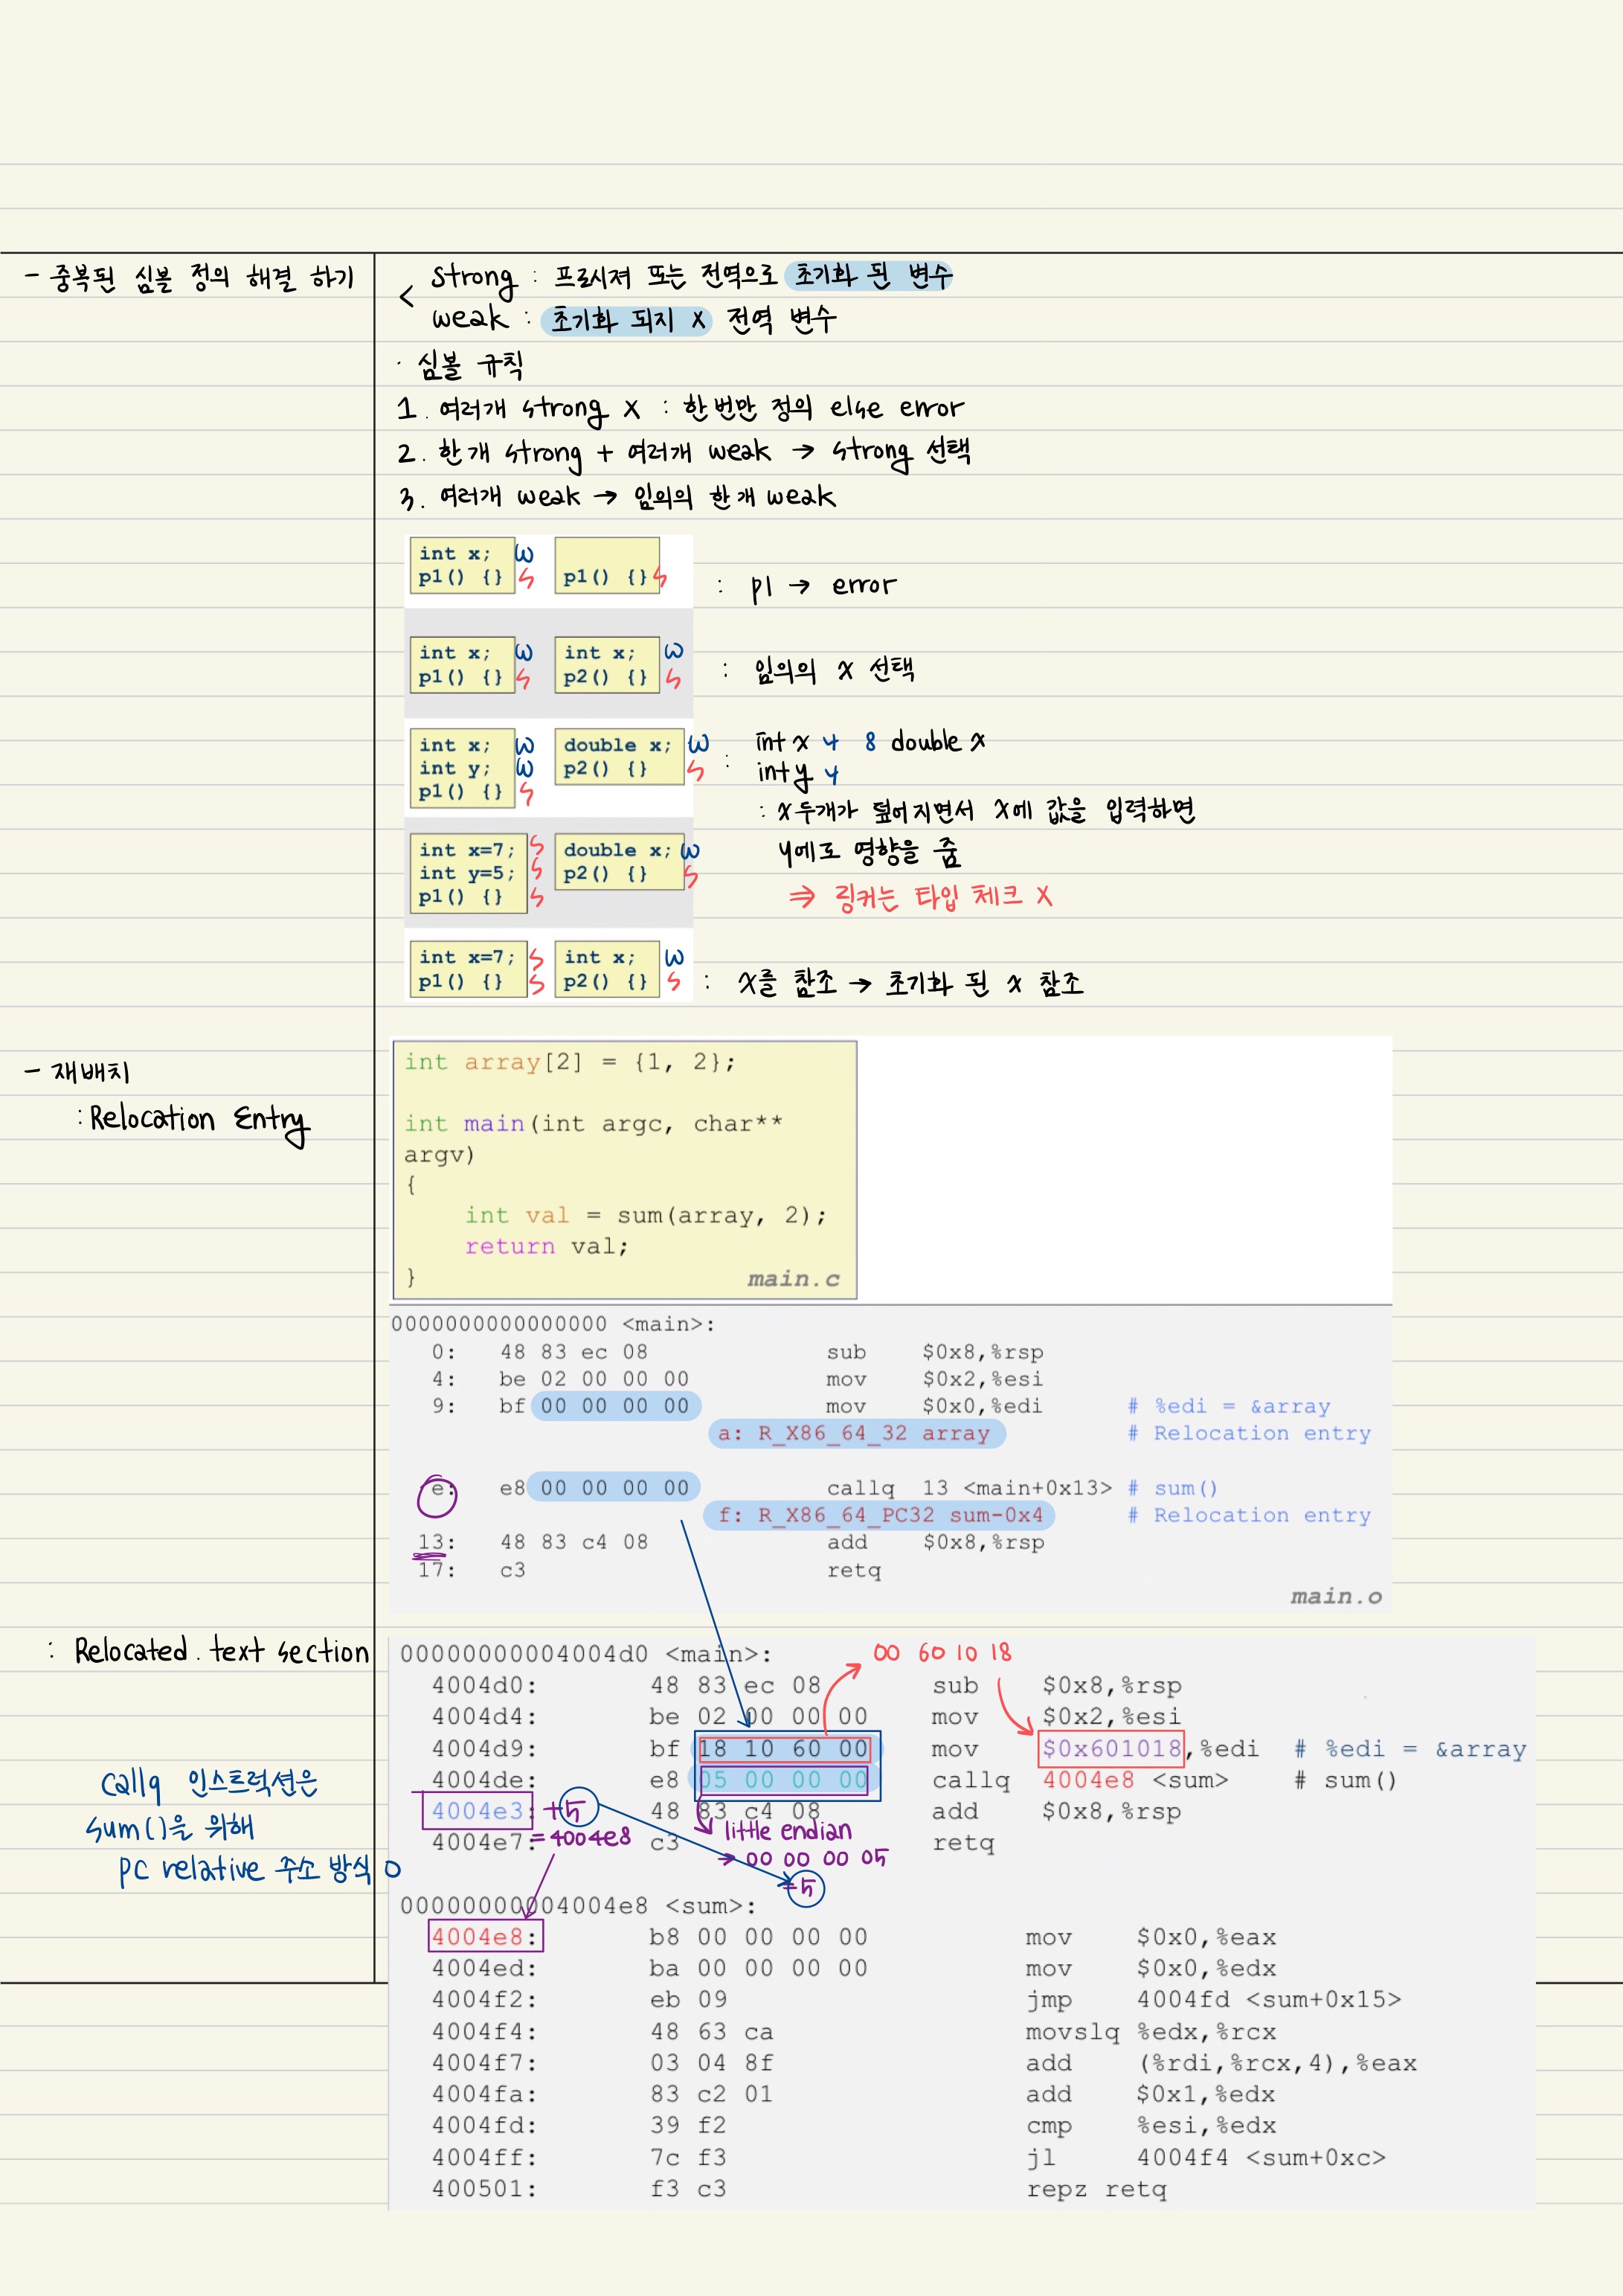 - 중복된 심볼 정의 해결 하기
< strong : 프로시져 또는 전역으로 초기화 된 변수
weak : 초기화 되지 X 전역 변수
· 심볼 규칙
1. 여러개 strong X : 한번만 정의 else error
2. 한개 strong + 여러개 weak → strong 선택
3. 여러개 weak → 임의의 한개 weak
int x; W
p1() {} S p1() {} S : p1 → error
int x; W int x; W
p1() {} S p2() {} S : 임의의 x 선택
int x; W double x; W : int x 4 8 double x
int y; W p2() {} S int y 4
p1() {} S
: x 두개가 덮어지면서 x에 값을 입력하면
y에도 영향을 줌
⇒ 링커는 타입 체크 X
int x=7; S double x; W
int y=5; S p2() {} S
p1() {} S
int x=7; S int x; W
p1() {} S p2() {} S : x를 참조 → 초기화 된 x 참조
- 재배치
: Relocation Entry
int array[2] = {1, 2};
int main(int argc, char**
argv)
{
int val = sum(array, 2);
return val;
}
main.c
0000000000000000 <main>:
0: 48 83 ec 08 sub $0x8,%rsp
4: be 02 00 00 00 mov $0x2,%esi
9: bf 00 00 00 00 mov $0x0,%edi # %edi = &array
a: R_X86_64_32 array # Relocation entry
e: e8 00 00 00 00 callq 13 <main+0x13> # sum()
f: R_X86_64_PC32 sum-0x4 # Relocation entry
13: 48 83 c4 08 add $0x8,%rsp
17: c3 retq
main.o
: Relocated .text section
00000000004004d0 <main>: 00 60 10 18
4004d0: 48 83 ec 08 sub $0x8,%rsp
4004d4: be 02 00 00 00 mov $0x2,%esi
4004d9: bf 18 10 60 00 mov $0x601018,%edi # %edi = &array
4004de: e8 05 00 00 00 callq 4004e8 <sum> # sum()
4004e3: +5 48 83 c4 08 add $0x8,%rsp
4004e7: =4004e8 c3 retq
little endian
→ 00 00 00 05
=5
callq 인스트럭션은
sum()을 위해
PC relative 주소 방식 O
00000000004004e8 <sum>:
4004e8: b8 00 00 00 00 mov $0x0,%eax
4004ed: ba 00 00 00 00 mov $0x0,%edx
4004f2: eb 09 jmp 4004fd <sum+0x15>
4004f4: 48 63 ca movslq %edx,%rcx
4004f7: 03 04 8f add (%rdi,%rcx,4),%eax
4004fa: 83 c2 01 add $0x1,%edx
4004fd: 39 f2 cmp %esi,%edx
4004ff: 7c f3 jl 4004f4 <sum+0xc>
400501: f3 c3 repz retq